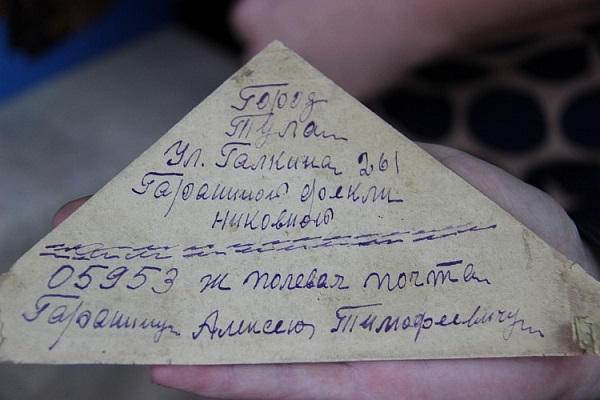 Город
Тула
Ул. Галкина 261
Гараниной Фекли
никовной
05953 ж полевая почта
Гаранину Алексею Тимофеевичу